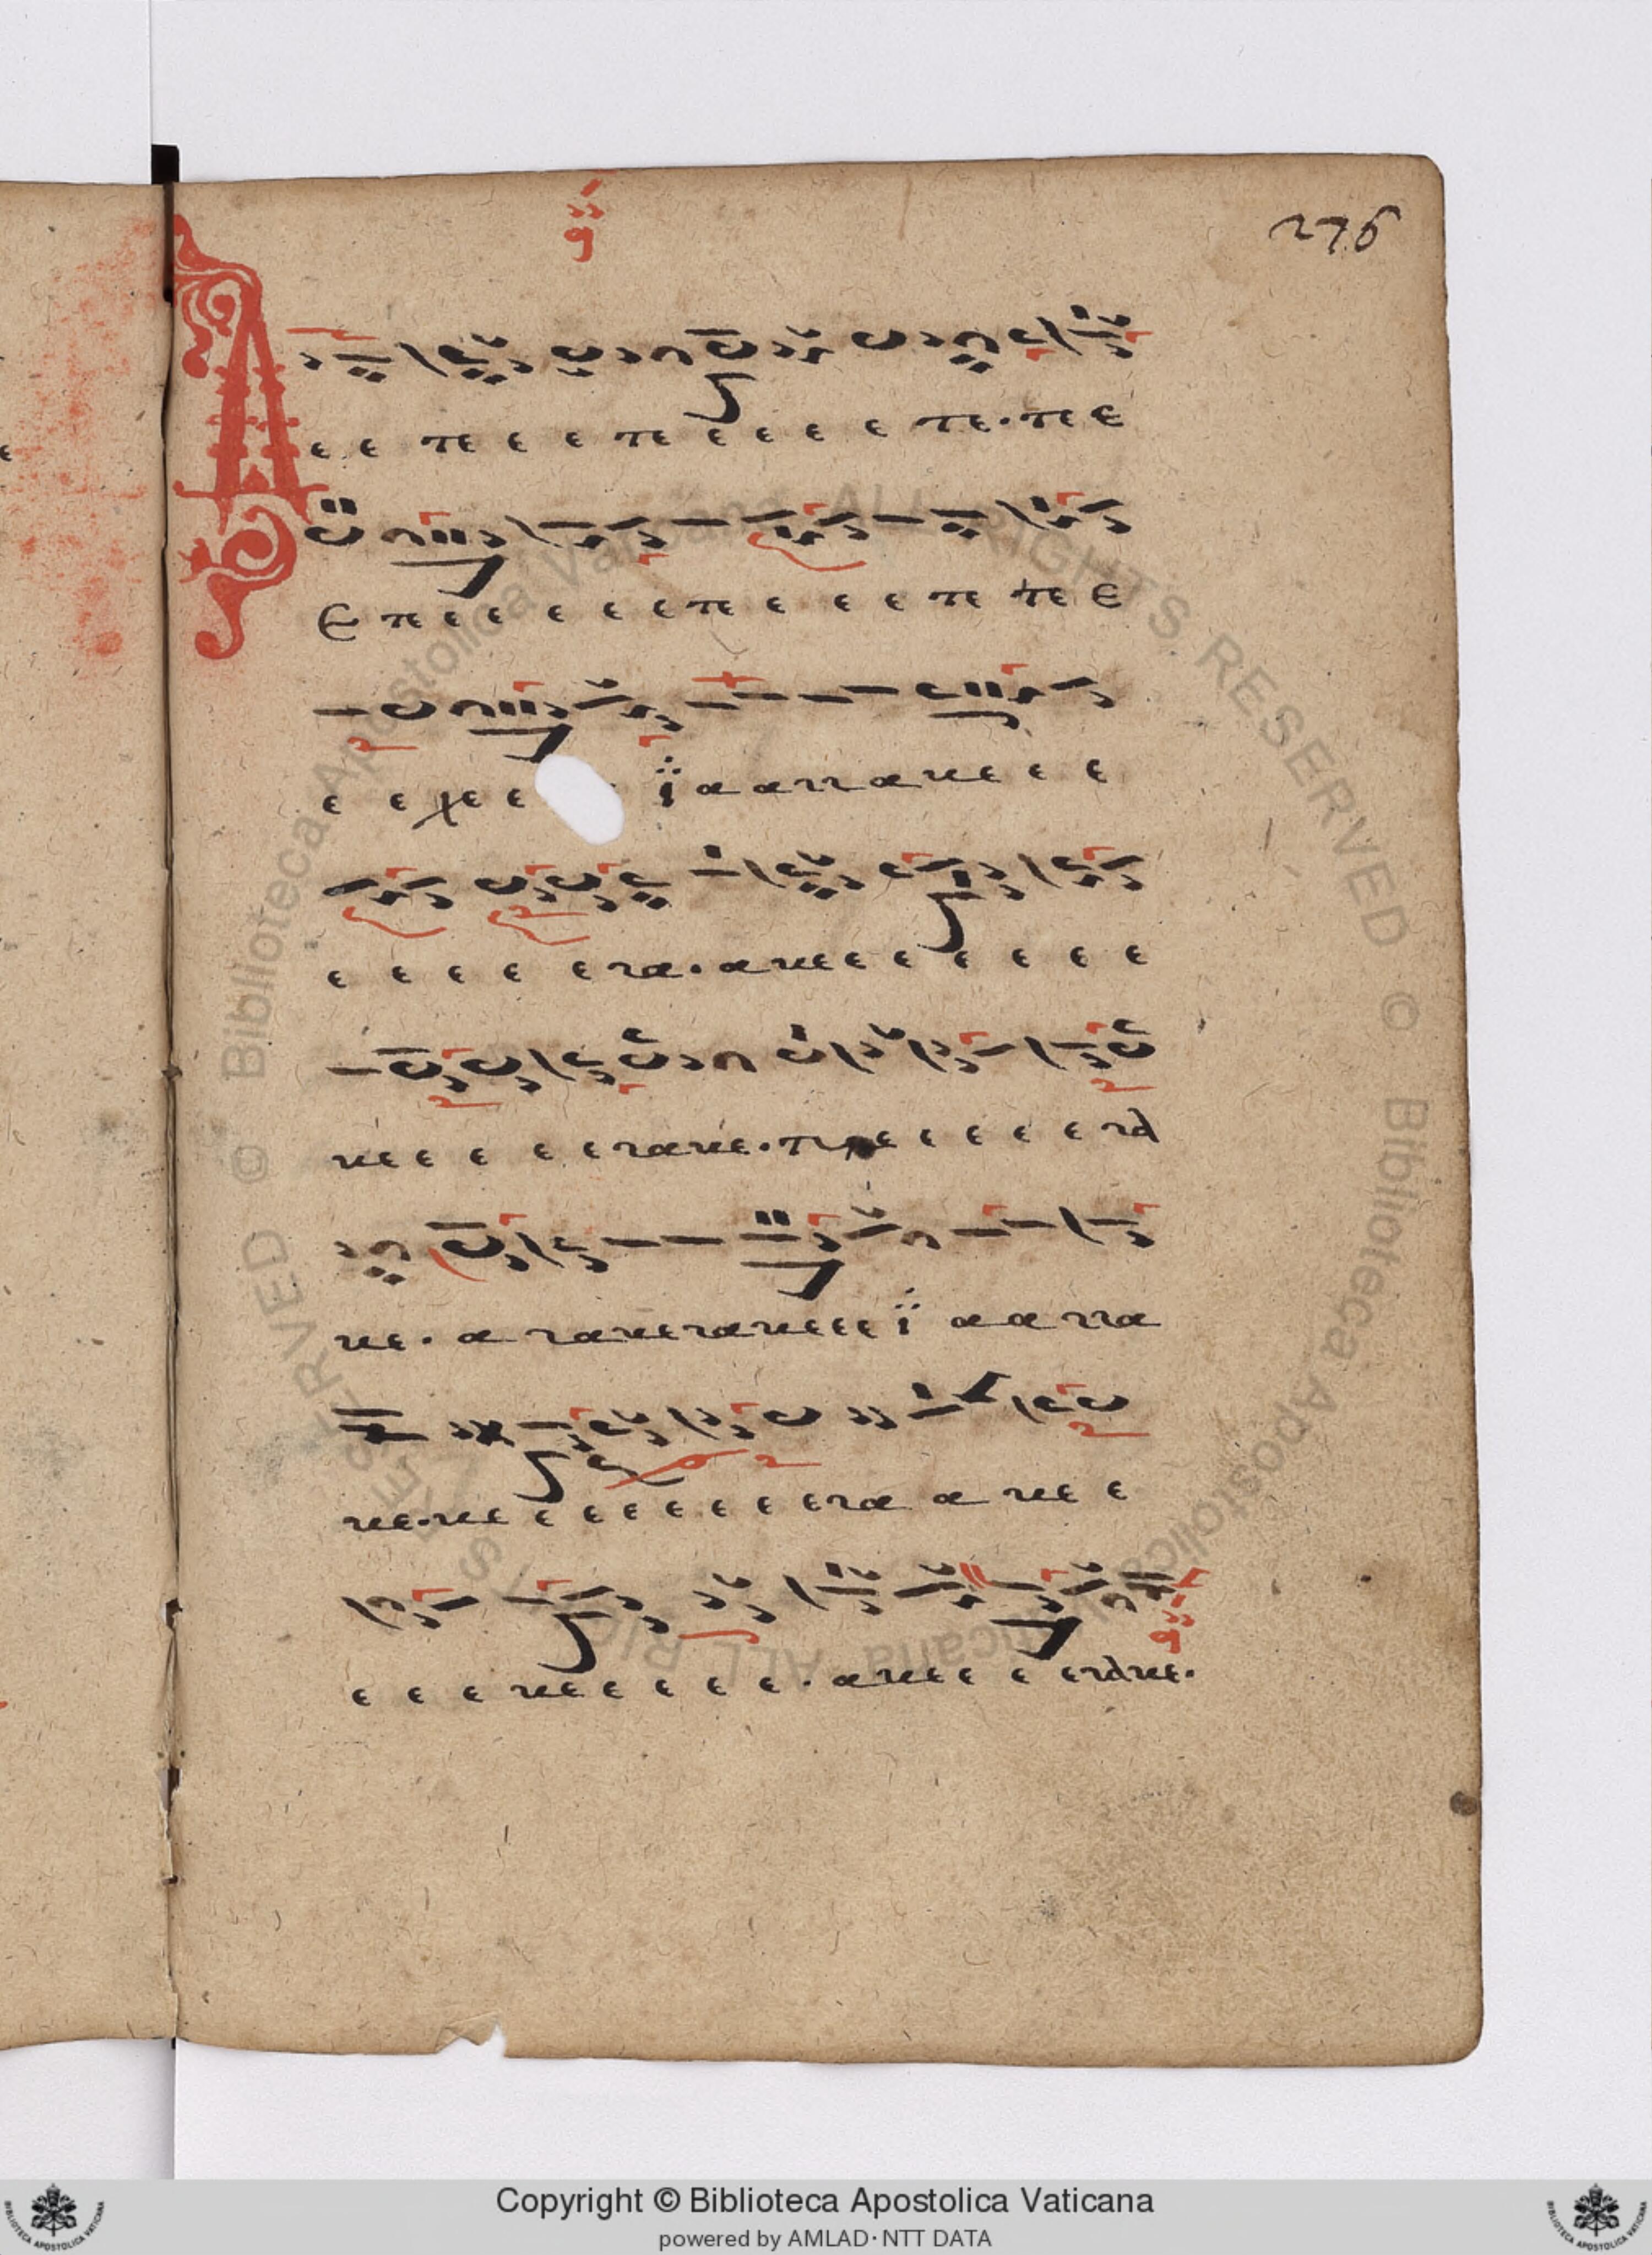 276
Δ
ε ε πε ε ε πε ε ε ε ε πε· πε ε
ε πε ε ε ε ε ε πε ε ε ε πε πε ε
ε ε χε ε ϊ α α να νε ε ε
ε ε ε ε ε να· α νε ε ε ε ε ε ε
νε ε ε ε ε να νε· ε ε ε ε ε να
νε· α να νε να νε ε ε ϊ α α να
νε· νε ε ε ε ε ε ε ε να α νε ε
ε ε ε νε ε ε ε ε· α νε ε ε ε να νε·
© Biblioteca Apostolica Vaticana ALL RIGHTS RESERVED © Biblioteca Apostolica Vaticana ALL RIGHTS RESERVED
Copyright © Biblioteca Apostolica Vaticana
powered by AMLAD·NTT DATA
BIBLIOTECA APOSTOLICA VATICANA
BIBLIOTECA APOSTOLICA VATICANA